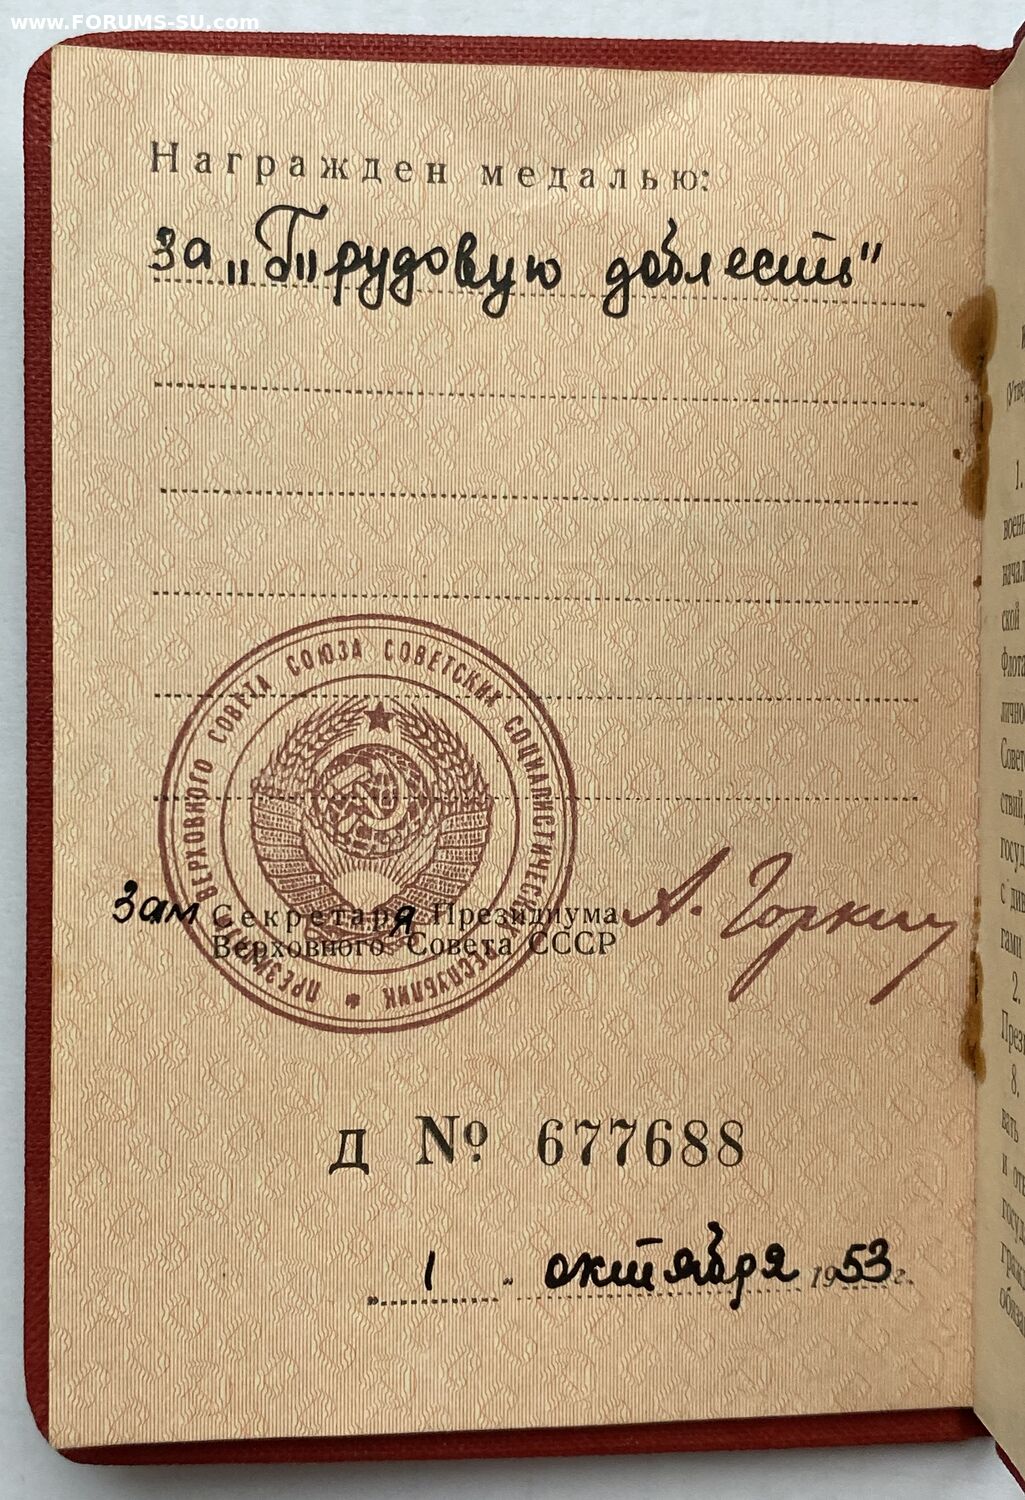 www.FORUMS-SU.com
Награжден медалью:
за „Трудовую доблесть"
ПРЕЗИДИУМ ВЕРХОВНОГО СОВЕТА СОЮЗА СОВЕТСКИХ СОЦИАЛИСТИЧЕСКИХ РЕСПУБЛИК *
Зам Секретаря Президиума
Верховного Совета СССР
А. Горкин
Д № 677688
„ 1 " октября 1953 г.
1.
ской
2.
8.